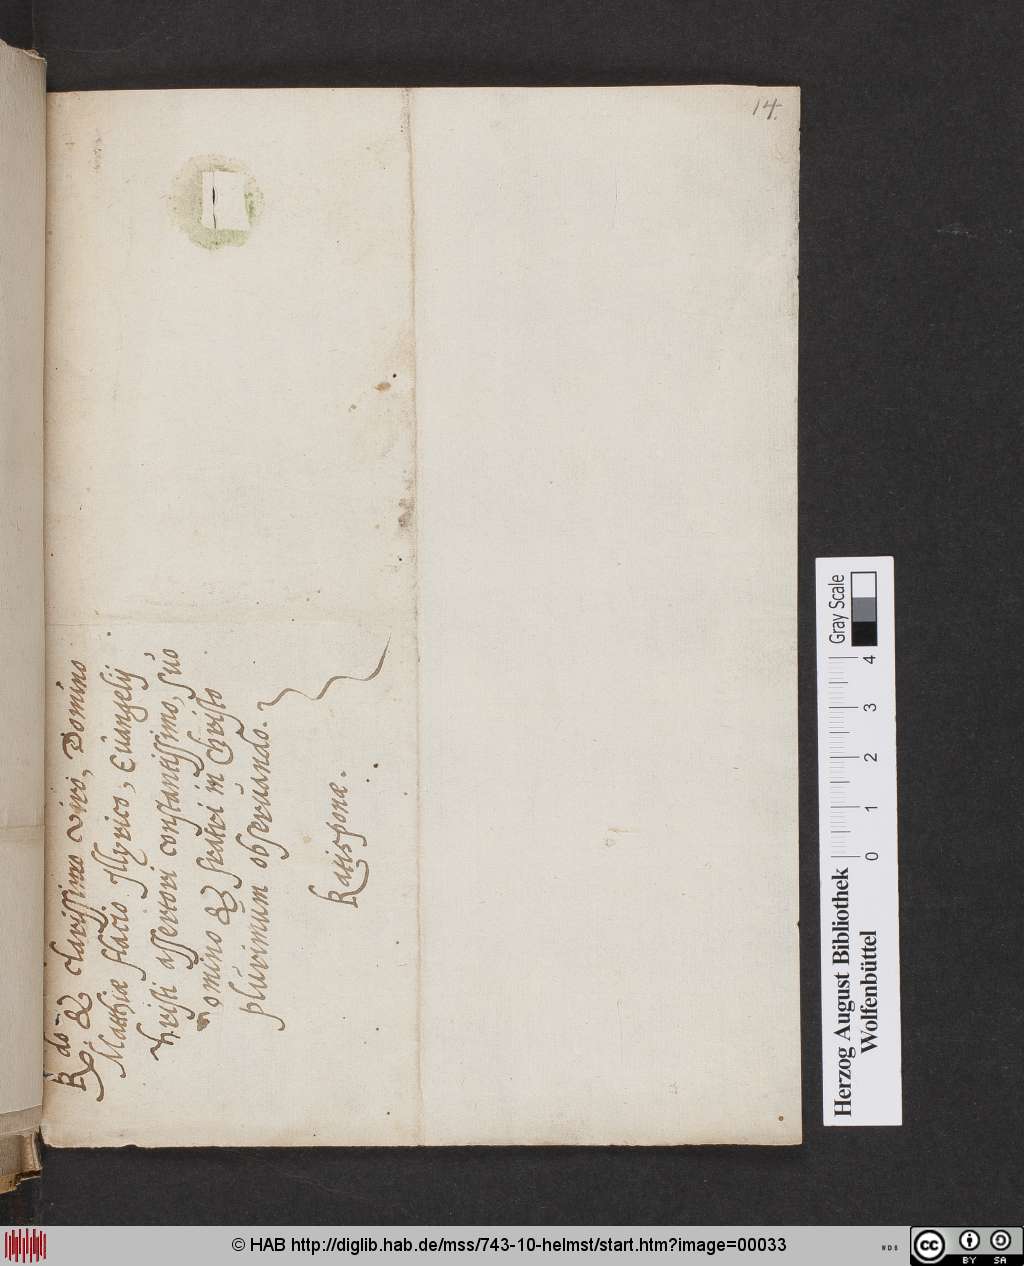 14.
R.do & clarissimo viro, Domino
Matthiæ flacio Illyrico, Euangelij
Christi assertori constantissimo, suo
domino & fratri in Christo
plurimum obseruando.
Ratisponæ.
Herzog August Bibliothek
Wolfenbüttel
0 1 2 3 4
Gray Scale
© HAB http://diglib.hab.de/mss/743-10-helmst/start.htm?image=00033
cc BY SA